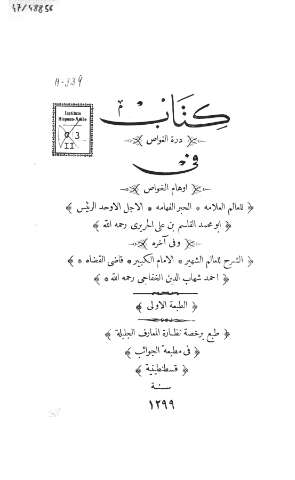 47/48856
A-339
Instituto
Hispano-Arabe
3
II
كتاب
درة الغواص
في
اوهام الخواص
﴿ للعالم العلامه * الحبر الفهامه * الاجل الاوحد الرئيس ﴾
﴿ ابو محمد القاسم بن على الحريرى رحمه الله ﴾
وفى آخره
﴿ الشرح للعالم الشهير * الامام الكبير * قاضى القضاه * ﴾
﴿ احمد شهاب الدين الخفاجى رحمه الله * ﴾
﴿ الطبعة الاولى ﴾
﴿ طبع برخصة نظارة المعارف الجليلة ﴾
﴿ فى مطبعة الجوائب ﴾
﴿ قسطنطينية ﴾
سنة
١٢٩٩